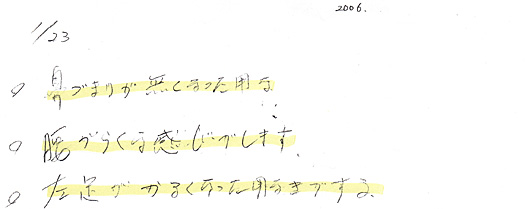 2006.
1/23
鼻づまりが無くなった用な…
腰がらくな感じがします。
左足がかるくなった用なきがする。